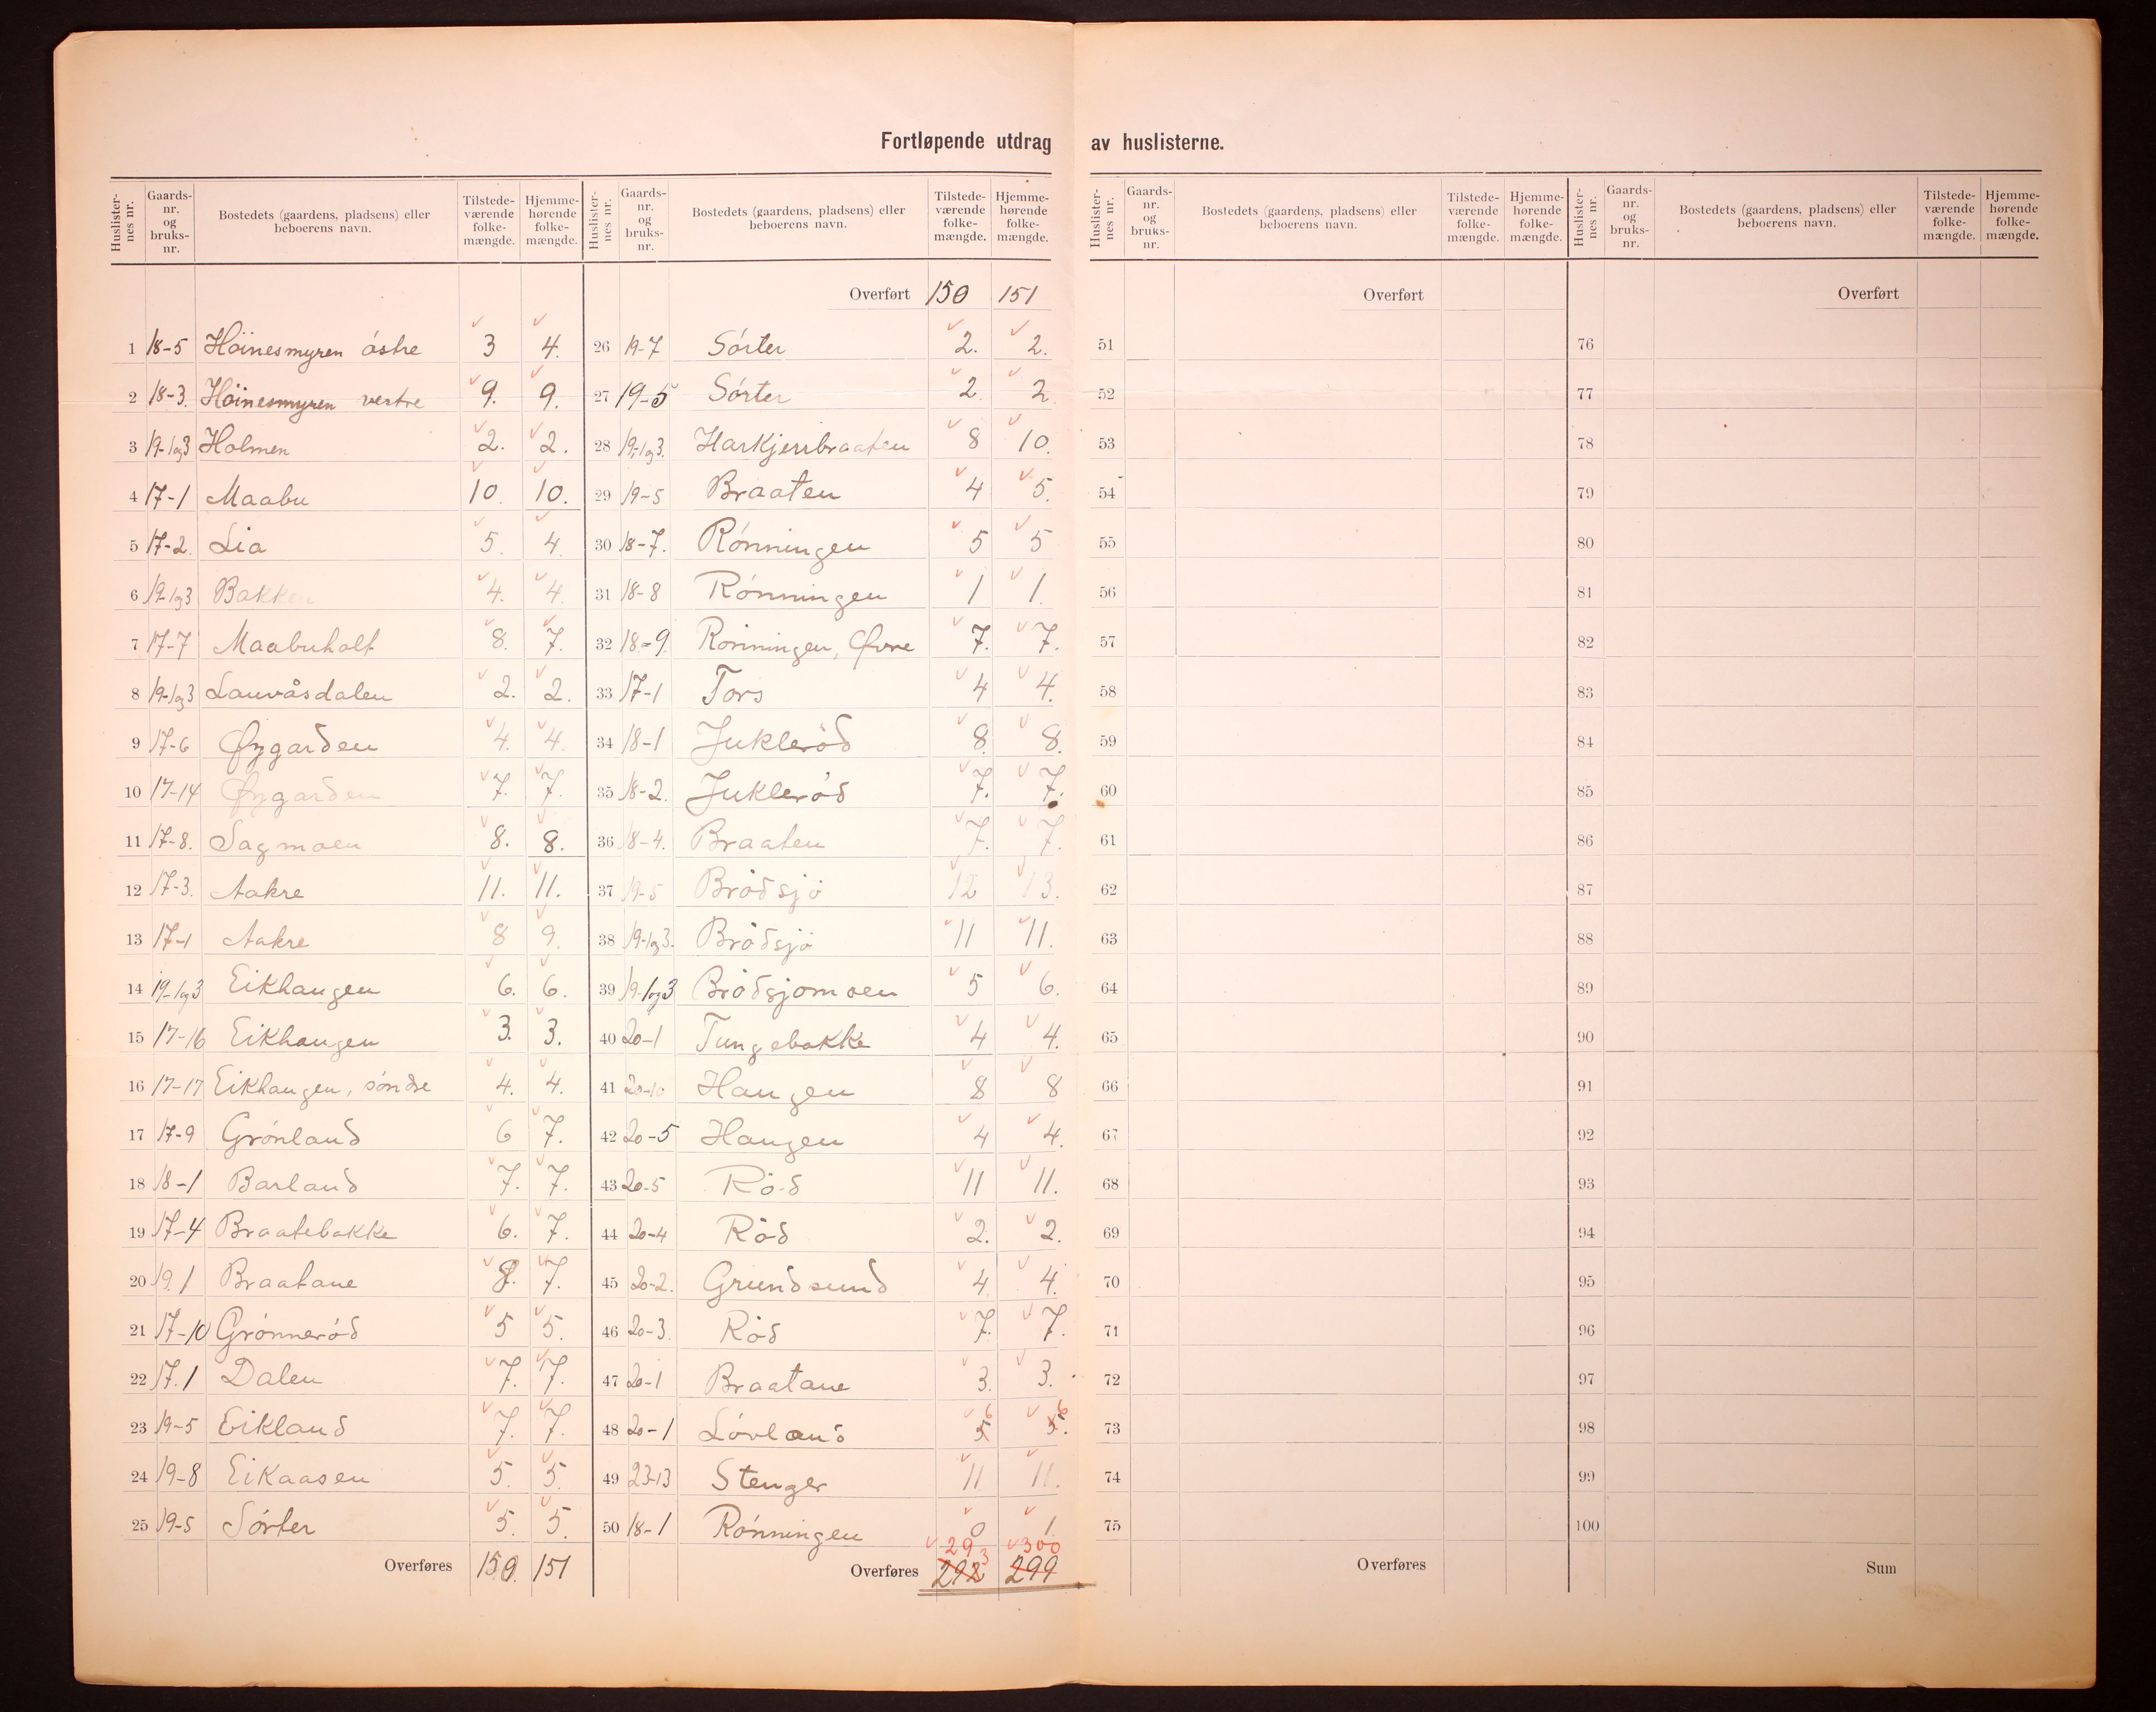 Fortløpende utdrag av huslisterne.
Huslister-nes nr. | Gaards-nr. og bruks-nr. | Bostedets (gaardens, pladsens) eller beboerens navn. | Tilstede-værende folke-mængde. | Hjemme-hørende folke-mængde.
1 18-5 Höinesmyren östre 3 4.
2 18-3. Höinesmyren vestre 9. 9.
3 19-1og3 Holmen 2. 2.
4 17-1 Maabu 10. 10.
5 17-2. Lia 5. 4.
6 19-1og3 Bakken 4. 4.
7 17-7 Maabuholt 8. 7.
8 19-1og3 Lauvåsdalen 2. 2.
9 17-6 Øygarden 4. 4.
10 17-14 Øygarden 7. 7.
11 17-8. Sagmoen 8. 8.
12 17-3. Aakre 11. 11.
13 17-1 Aakre 8 9.
14 19-1og3 Eikhaugen 6. 6.
15 17-16 Eikhaugen 3. 3.
16 17-17 Eikhaugen, söndre 4. 4.
17 17-9 Grönland 6 7.
18 18-1 Barland 7. 7.
19 17-4 Braatebakke 6. 7.
20 19.1 Braatane 8. 7.
21 17-10 Grönneröd 5 5.
22 17.1 Dalen 7. 7.
23 19-5 Eikland 7. 7.
24 19-8 Eikaasen 5. 5.
25 19-5 Sörter 5. 5.
Overføres 150. 151
Huslister-nes nr. | Gaards-nr. og bruks-nr. | Bostedets (gaardens, pladsens) eller beboerens navn. | Tilstede-værende folke-mængde. | Hjemme-hørende folke-mængde.
Overført 150 151
26 19-7 Sörter 2. 2.
27 19-5 Sörter 2. 2.
28 19-1og3. Harkjerrbraaten 8 10.
29 19-5 Braaten 4 5.
30 18-7. Rönningen 5 5
31 18-8 Rönningen 1 1.
32 18-9. Rönningen, Øvre 7. 7.
33 17-1 Tors 4 4.
34 18-1 Jukleröd 8. 8.
35 18-2. Jukleröd 7. 7.
36 18-4. Braaten 7. 7.
37 19-5 Brödsjö 12 13.
38 19-1og3. Brödsjö 11 11.
39 19-1og3 Brödsjomoen 5 6.
40 20-1 Tungebakke 4 4.
41 20-10 Haugen 8 8
42 20-5 Haugen 4 4.
43 20-5 Röd 11 11.
44 20-4 Röd 2. 2.
45 20-2. Grundsund 4. 4.
46 20-3. Röd 7. 7.
47 20-1 Braatane 3. 3.
48 20-1 Lövland 5 6 5. 6
49 23-13 Stenger 11 11.
50 18-1 Rönningen 0 1.
293 300
Overføres 292 299
Huslister-nes nr. | Gaards-nr. og bruks-nr. | Bostedets (gaardens, pladsens) eller beboerens navn. | Tilstede-værende folke-mængde. | Hjemme-hørende folke-mængde.
Overført
51
52
53
54
55
56
57
58
59
60
61
62
63
64
65
66
67
68
69
70
71
72
73
74
75
Overføres
Huslister-nes nr. | Gaards-nr. og bruks-nr. | Bostedets (gaardens, pladsens) eller beboerens navn. | Tilstede-værende folke-mængde. | Hjemme-hørende folke-mængde.
Overført
76
77
78
79
80
81
82
83
84
85
86
87
88
89
90
91
92
93
94
95
96
97
98
99
100
Sum